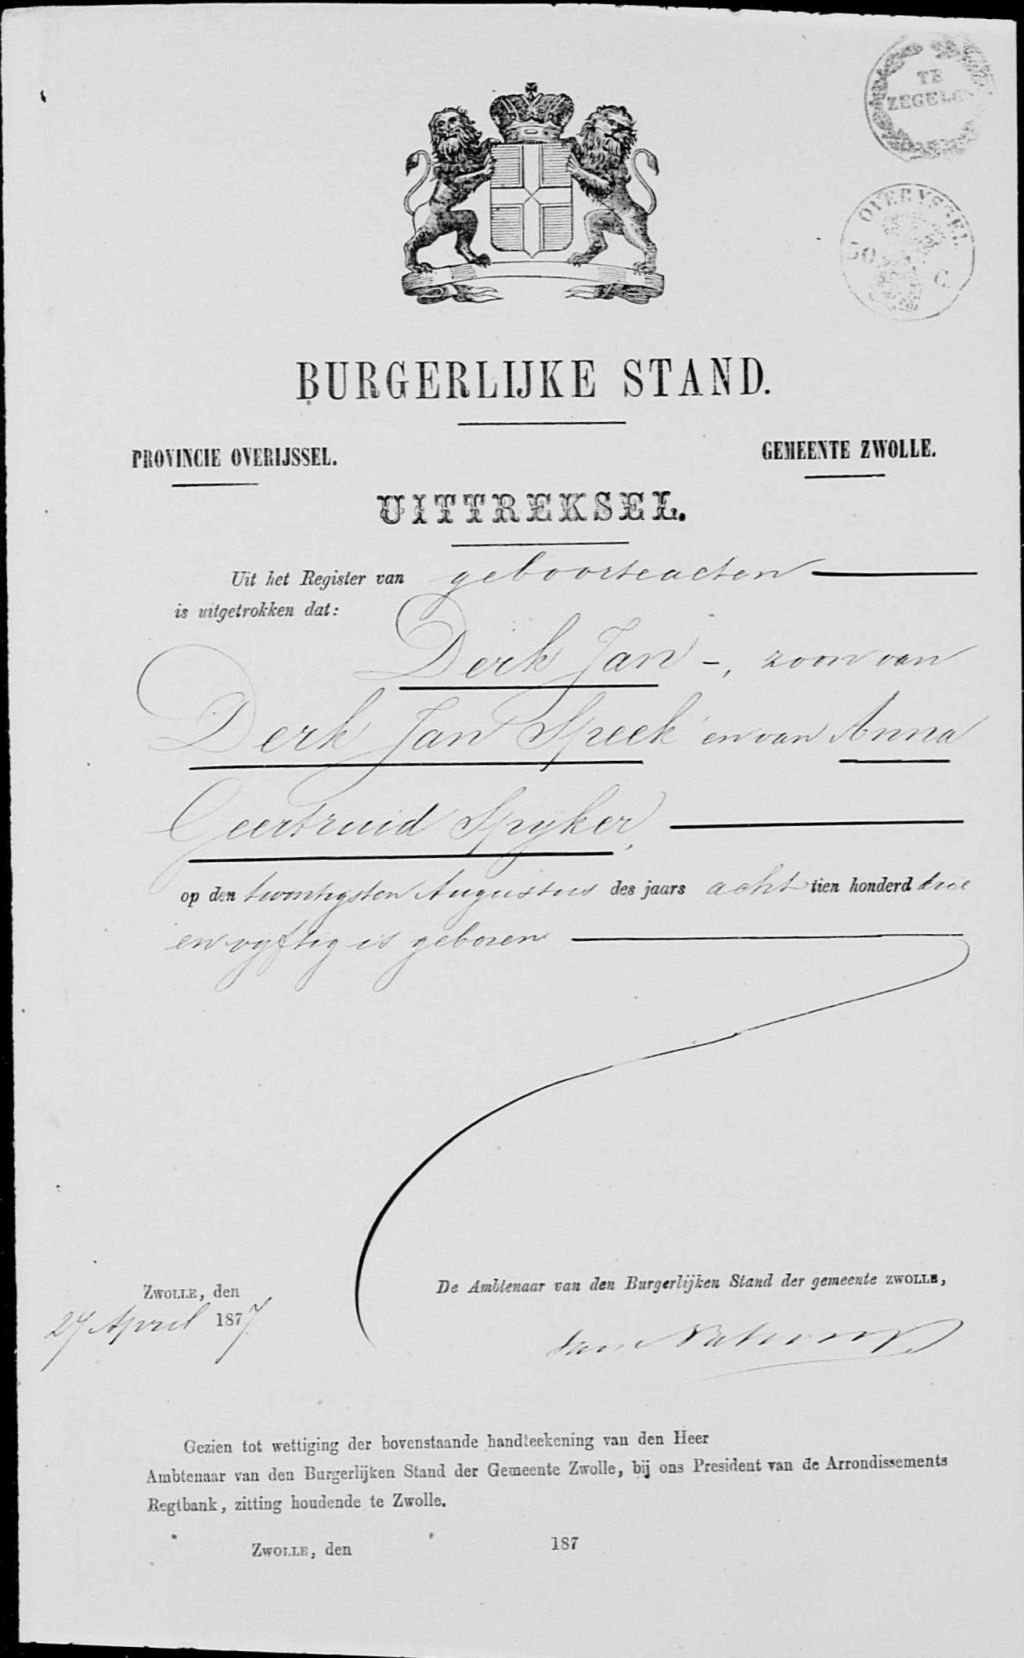 TE
ZEGELEN
OVERYSSEL
50 C
BURGERLIJKE STAND.
PROVINCIE OVERIJSSEL.
GEMEENTE ZWOLLE.
UITTREKSEL.
Uit het Register van geboorteacten
is uitgetrokken dat:
Derk Jan -, zoon van
Derk Jan Speek en van Anna
Geertruid Spyker,
op den twintigsten Augustus des jaars acht tien honderd drie
en vyftig is geboren
ZWOLLE, den
27 April 1877
De Ambtenaar van den Burgerlijken Stand der gemeente ZWOLLE,
Gezien tot wettiging der bovenstaande handteekening van den Heer
Ambtenaar van den Burgerlijken Stand der Gemeente Zwolle, bij ons President van de Arrondissements
Regtbank, zitting houdende te Zwolle.
ZWOLLE, den 187